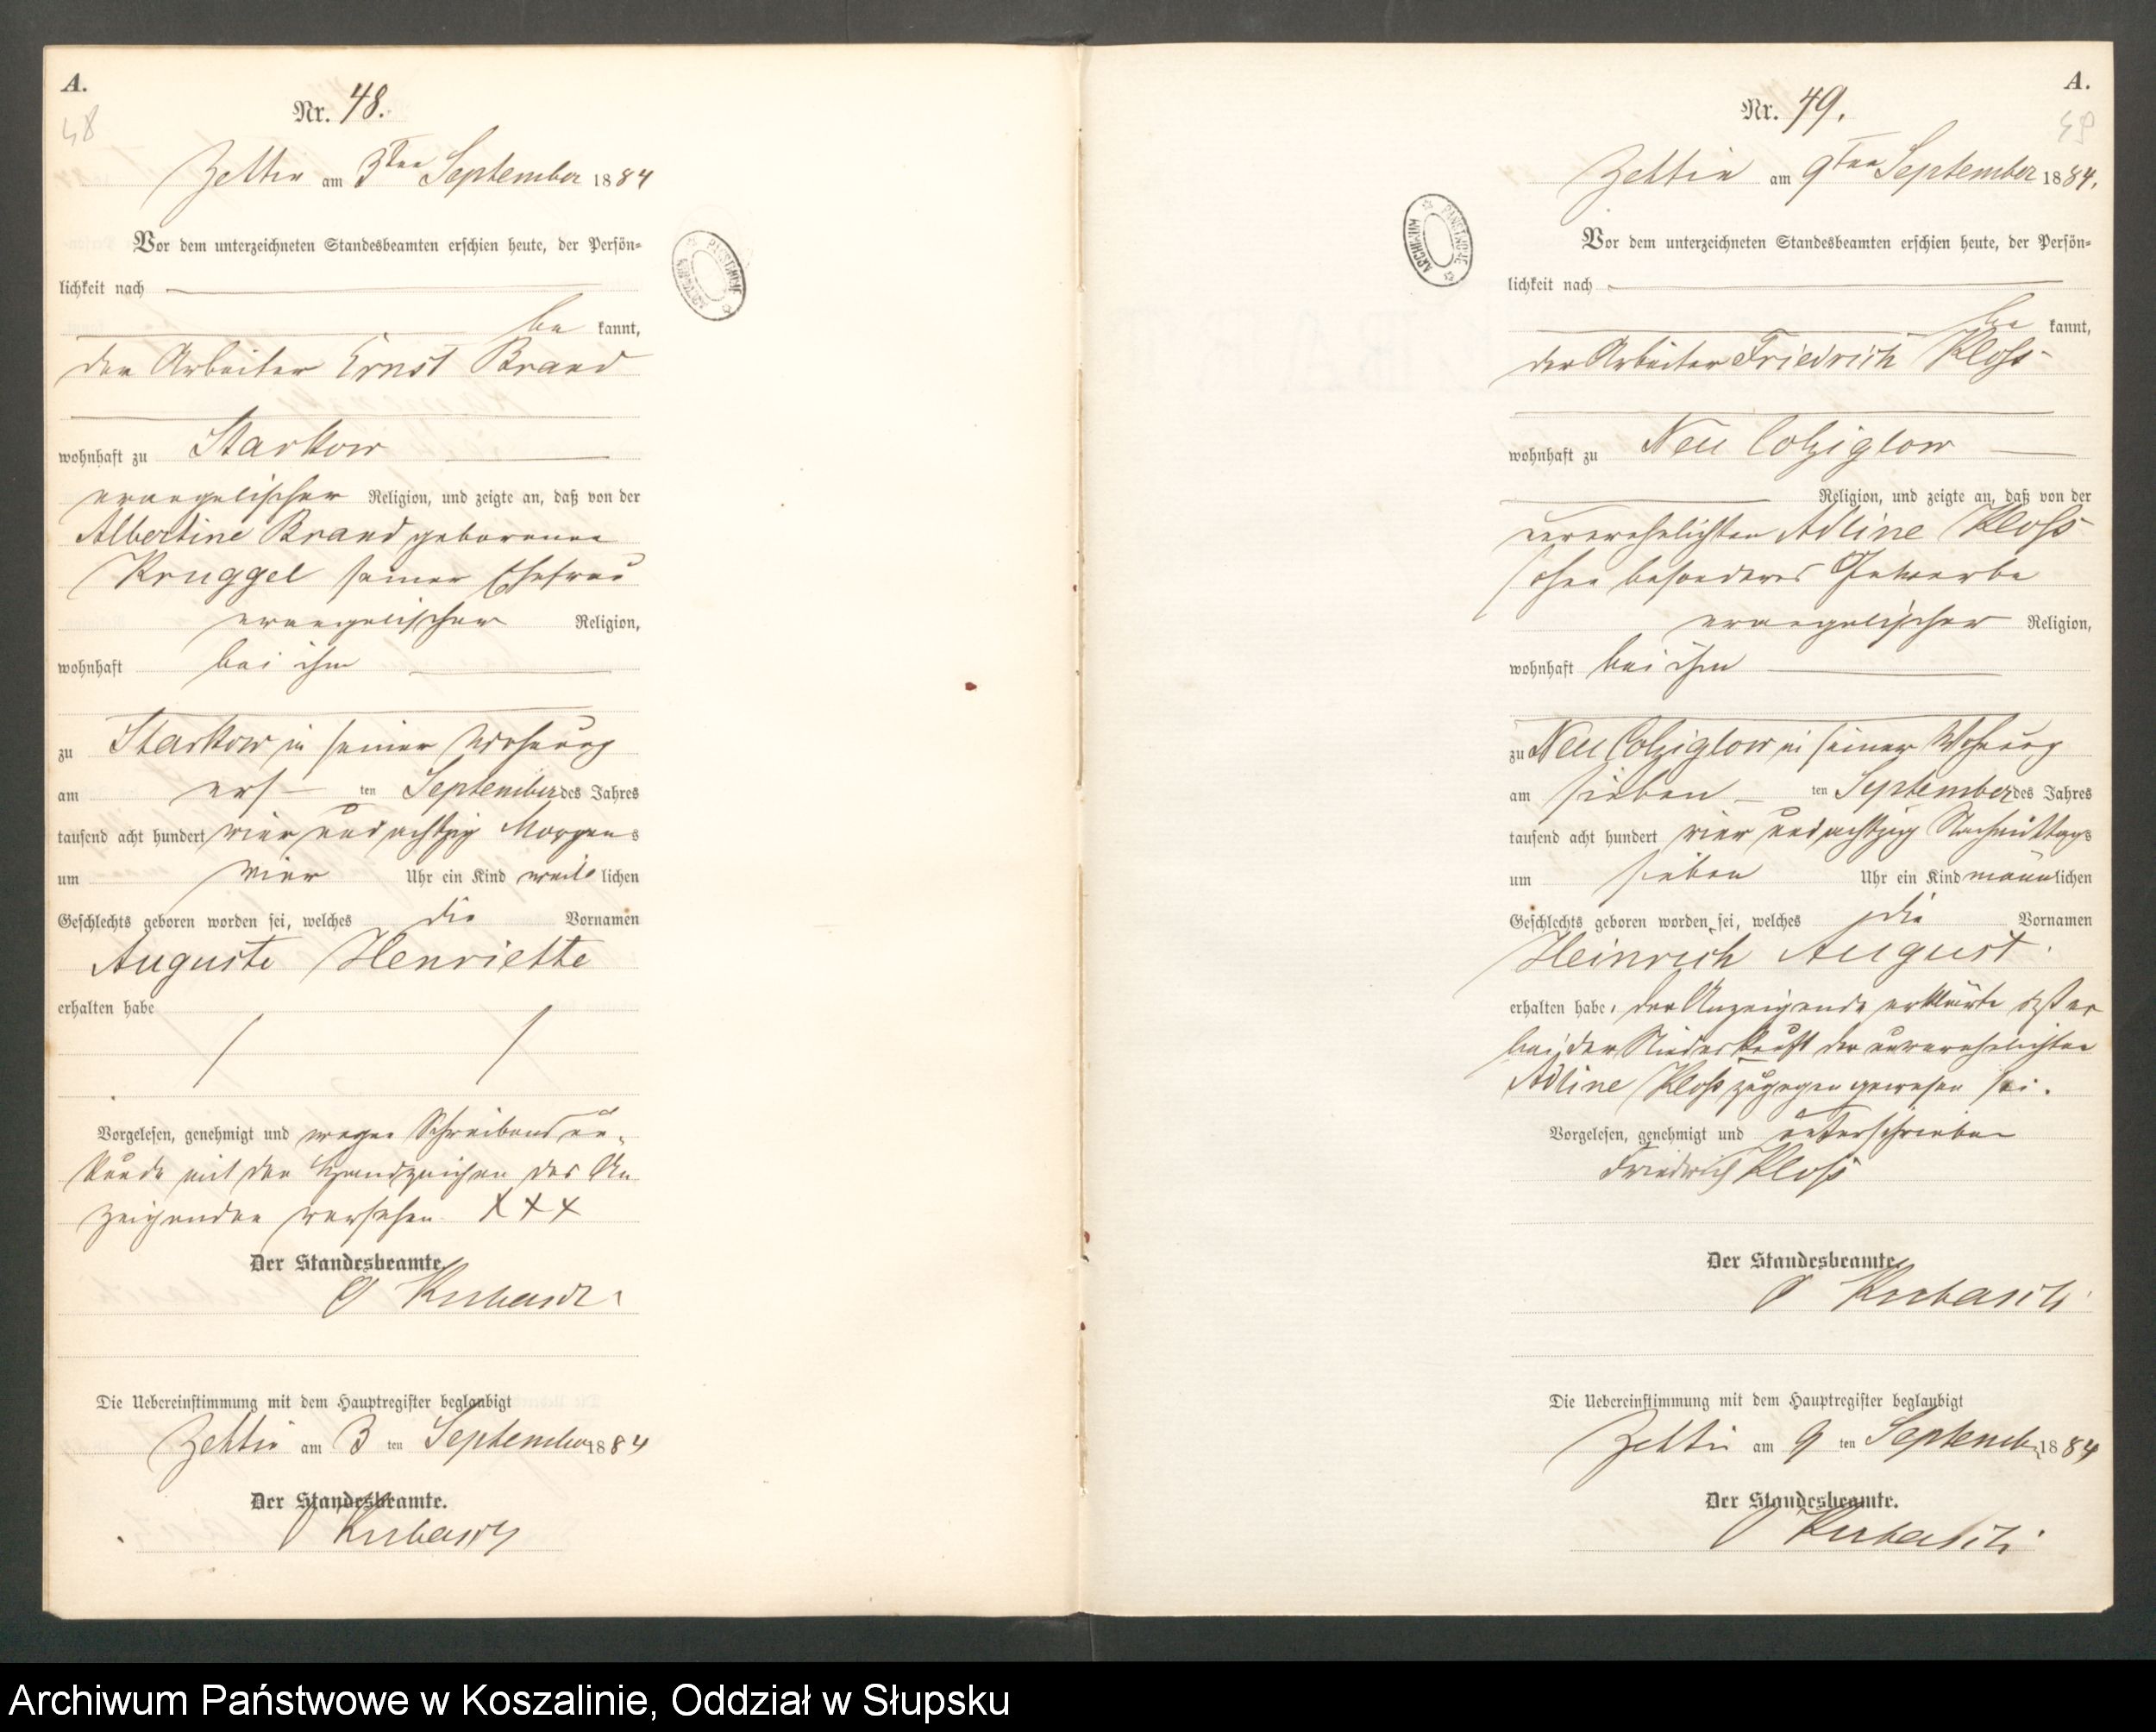 A.
48
Nr. 48.
Zettin am 3ten September 1884
Vor dem unterzeichneten Standesbeamten erschien heute, der Persön-
lichkeit nach
be kannt,
der Arbeiter Ernst Brand
wohnhaft zu Starkow
evangelischer Religion, und zeigte an, daß von der
Albertine Brand geborenen
Kruggel seiner Ehefrau
evangelischer Religion,
wohnhaft bei ihm
zu Starkow in seiner Wohnung
am ers ten September des Jahres
tausend acht hundert vier und achtzig Morgens
um vier Uhr ein Kind weib lichen
Geschlechts geboren worden sei, welches die Vornamen
Auguste Henriette
erhalten habe
Vorgelesen, genehmigt und wegen Schreibensun-
kunde mit den Handzeichen des An
zeigenden versehen XXX
Der Standesbeamte.
Die Uebereinstimmung mit dem Hauptregister beglaubigt
Zettin am 3 ten September 1884
Der Standesbeamte.
ARCHIWUM PAŃSTWOWE
A.
49
Nr. 49.
Zettin am 9ten September 1884.
Vor dem unterzeichneten Standesbeamten erschien heute, der Persön-
lichkeit nach
be kannt,
der Arbeiter Friedrich Kloß
wohnhaft zu Neu Colziglow
Religion, und zeigte an, daß von der
unverehelichten Adline Kloß
ohne besonderes Gewerbe
evangelischer Religion,
wohnhaft bei ihm
zu Neu Colziglow in seiner Wohnung
am sieben ten September des Jahres
tausend acht hundert vier und achtzig Nachmittags
um sieben Uhr ein Kind männlichen
Geschlechts geboren worden sei, welches die Vornamen
Heinrich August
erhalten habe, der Anzeigende erklärte daß er
bei der Niederkunft der unverehelichten
Adline Kloß zugegen gewesen sei.
Vorgelesen, genehmigt und unterschrieben
Friedrich Kloß
Der Standesbeamte.
Die Uebereinstimmung mit dem Hauptregister beglaubigt
Zettin am 9 ten September 1884
Der Standesbeamte.
ARCHIWUM PAŃSTWOWE
Archiwum Państwowe w Koszalinie, Oddział w Słupsku